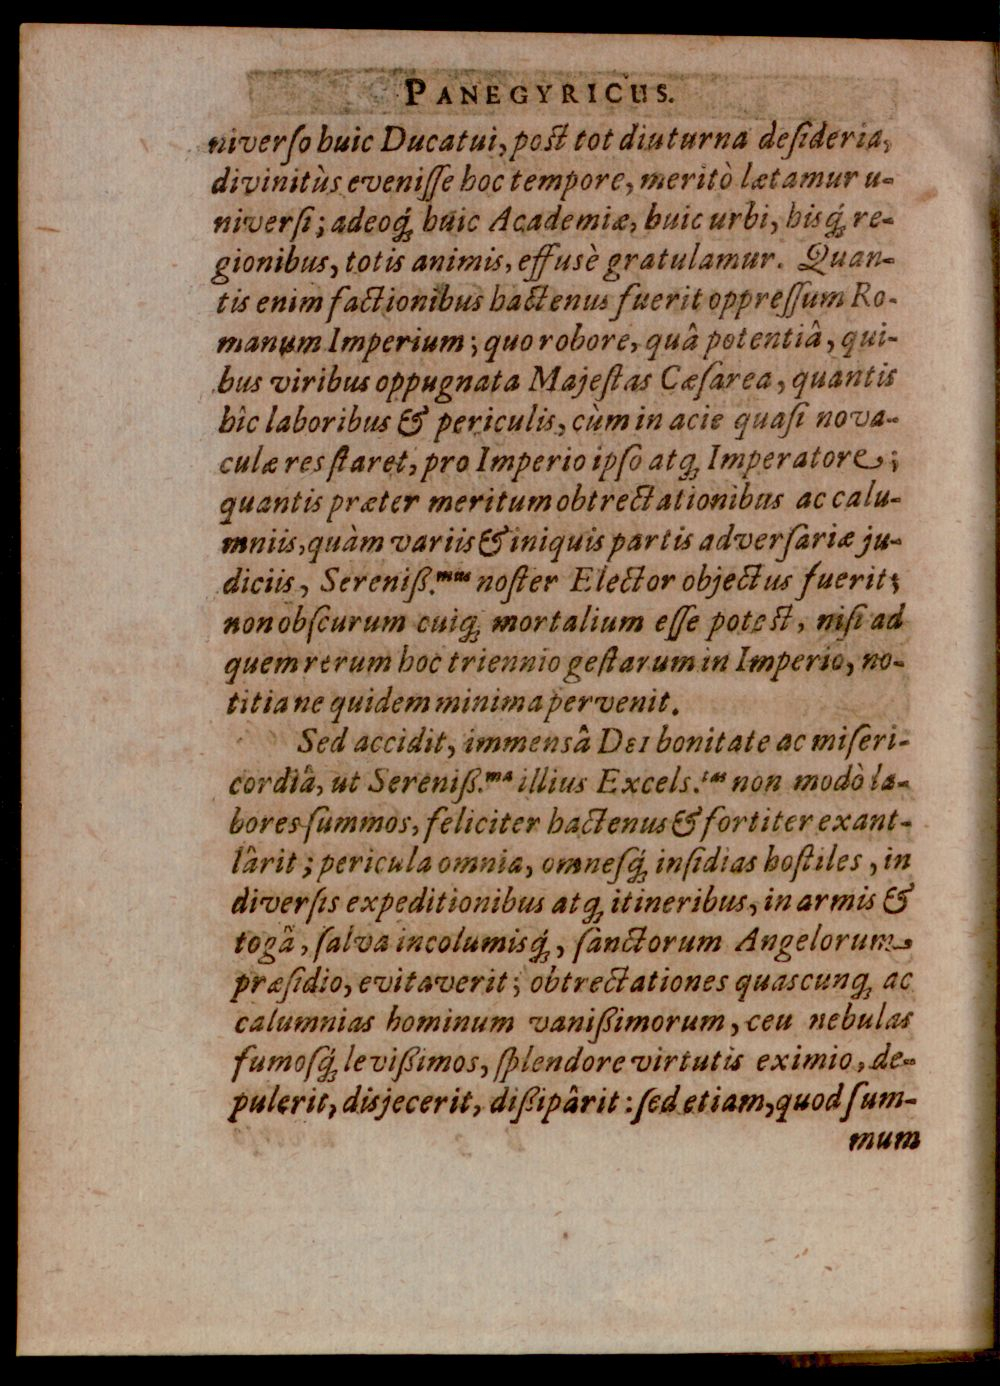 PANEGYRICUS.
niverſo huic Ducatui, poſt tot diuturna deſideria,
divinitùs eveniſſe hoc tempore, meritò lætamur u-
niverſi; adeoq́; huic Academiæ, huic urbi, hisq́; re-
gionibus, totis animis, effusè gratulamur. Quan-
tis enim factionibus hactenus fuerit oppreſſum Ro-
manum Imperium; quo robore, quâ potentiâ, qui-
bus viribus oppugnata Majeſtas Cæſarea, quantis
hîc laboribus & periculis, cùm in acie quaſi nova-
culæ res ſtaret, pro Imperio ipſo atq; Imperatore;
quantis præter meritum obtrectationibus ac calu-
mniis, quàm variis & iniquis partis adverſariæ ju-
diciis, Sereniß.mus noſter Elector objectus fuerit;
non obſcurum cuiq; mortalium eſſe poteſt, niſi ad
quem rerum hoc triennio geſtarum in Imperio, no-
titia ne quidem minima pervenit.
Sed accidit, immensâ DEI bonitate ac miſeri-
cordiâ, ut Sereniß.ma illius Excelſ.tas non modò la-
bores ſummos, feliciter hactenus & fortiter exant-
lârit; pericula omnia, omneſq́; inſidias hoſtiles, in
diverſis expeditionibus atq; itineribus, in armis &
togâ, ſalva incolumisq́;, ſanctorum Angelorum
præſidio, evitaverit; obtrectationes quascunq; ac
calumnias hominum vanißimorum, ceu nebulas
fumoſq́; levißimos, ſplendore virtutis eximio, de-
pulerit, disjecerit, dißipârit: ſed etiam, quod ſum-
mum